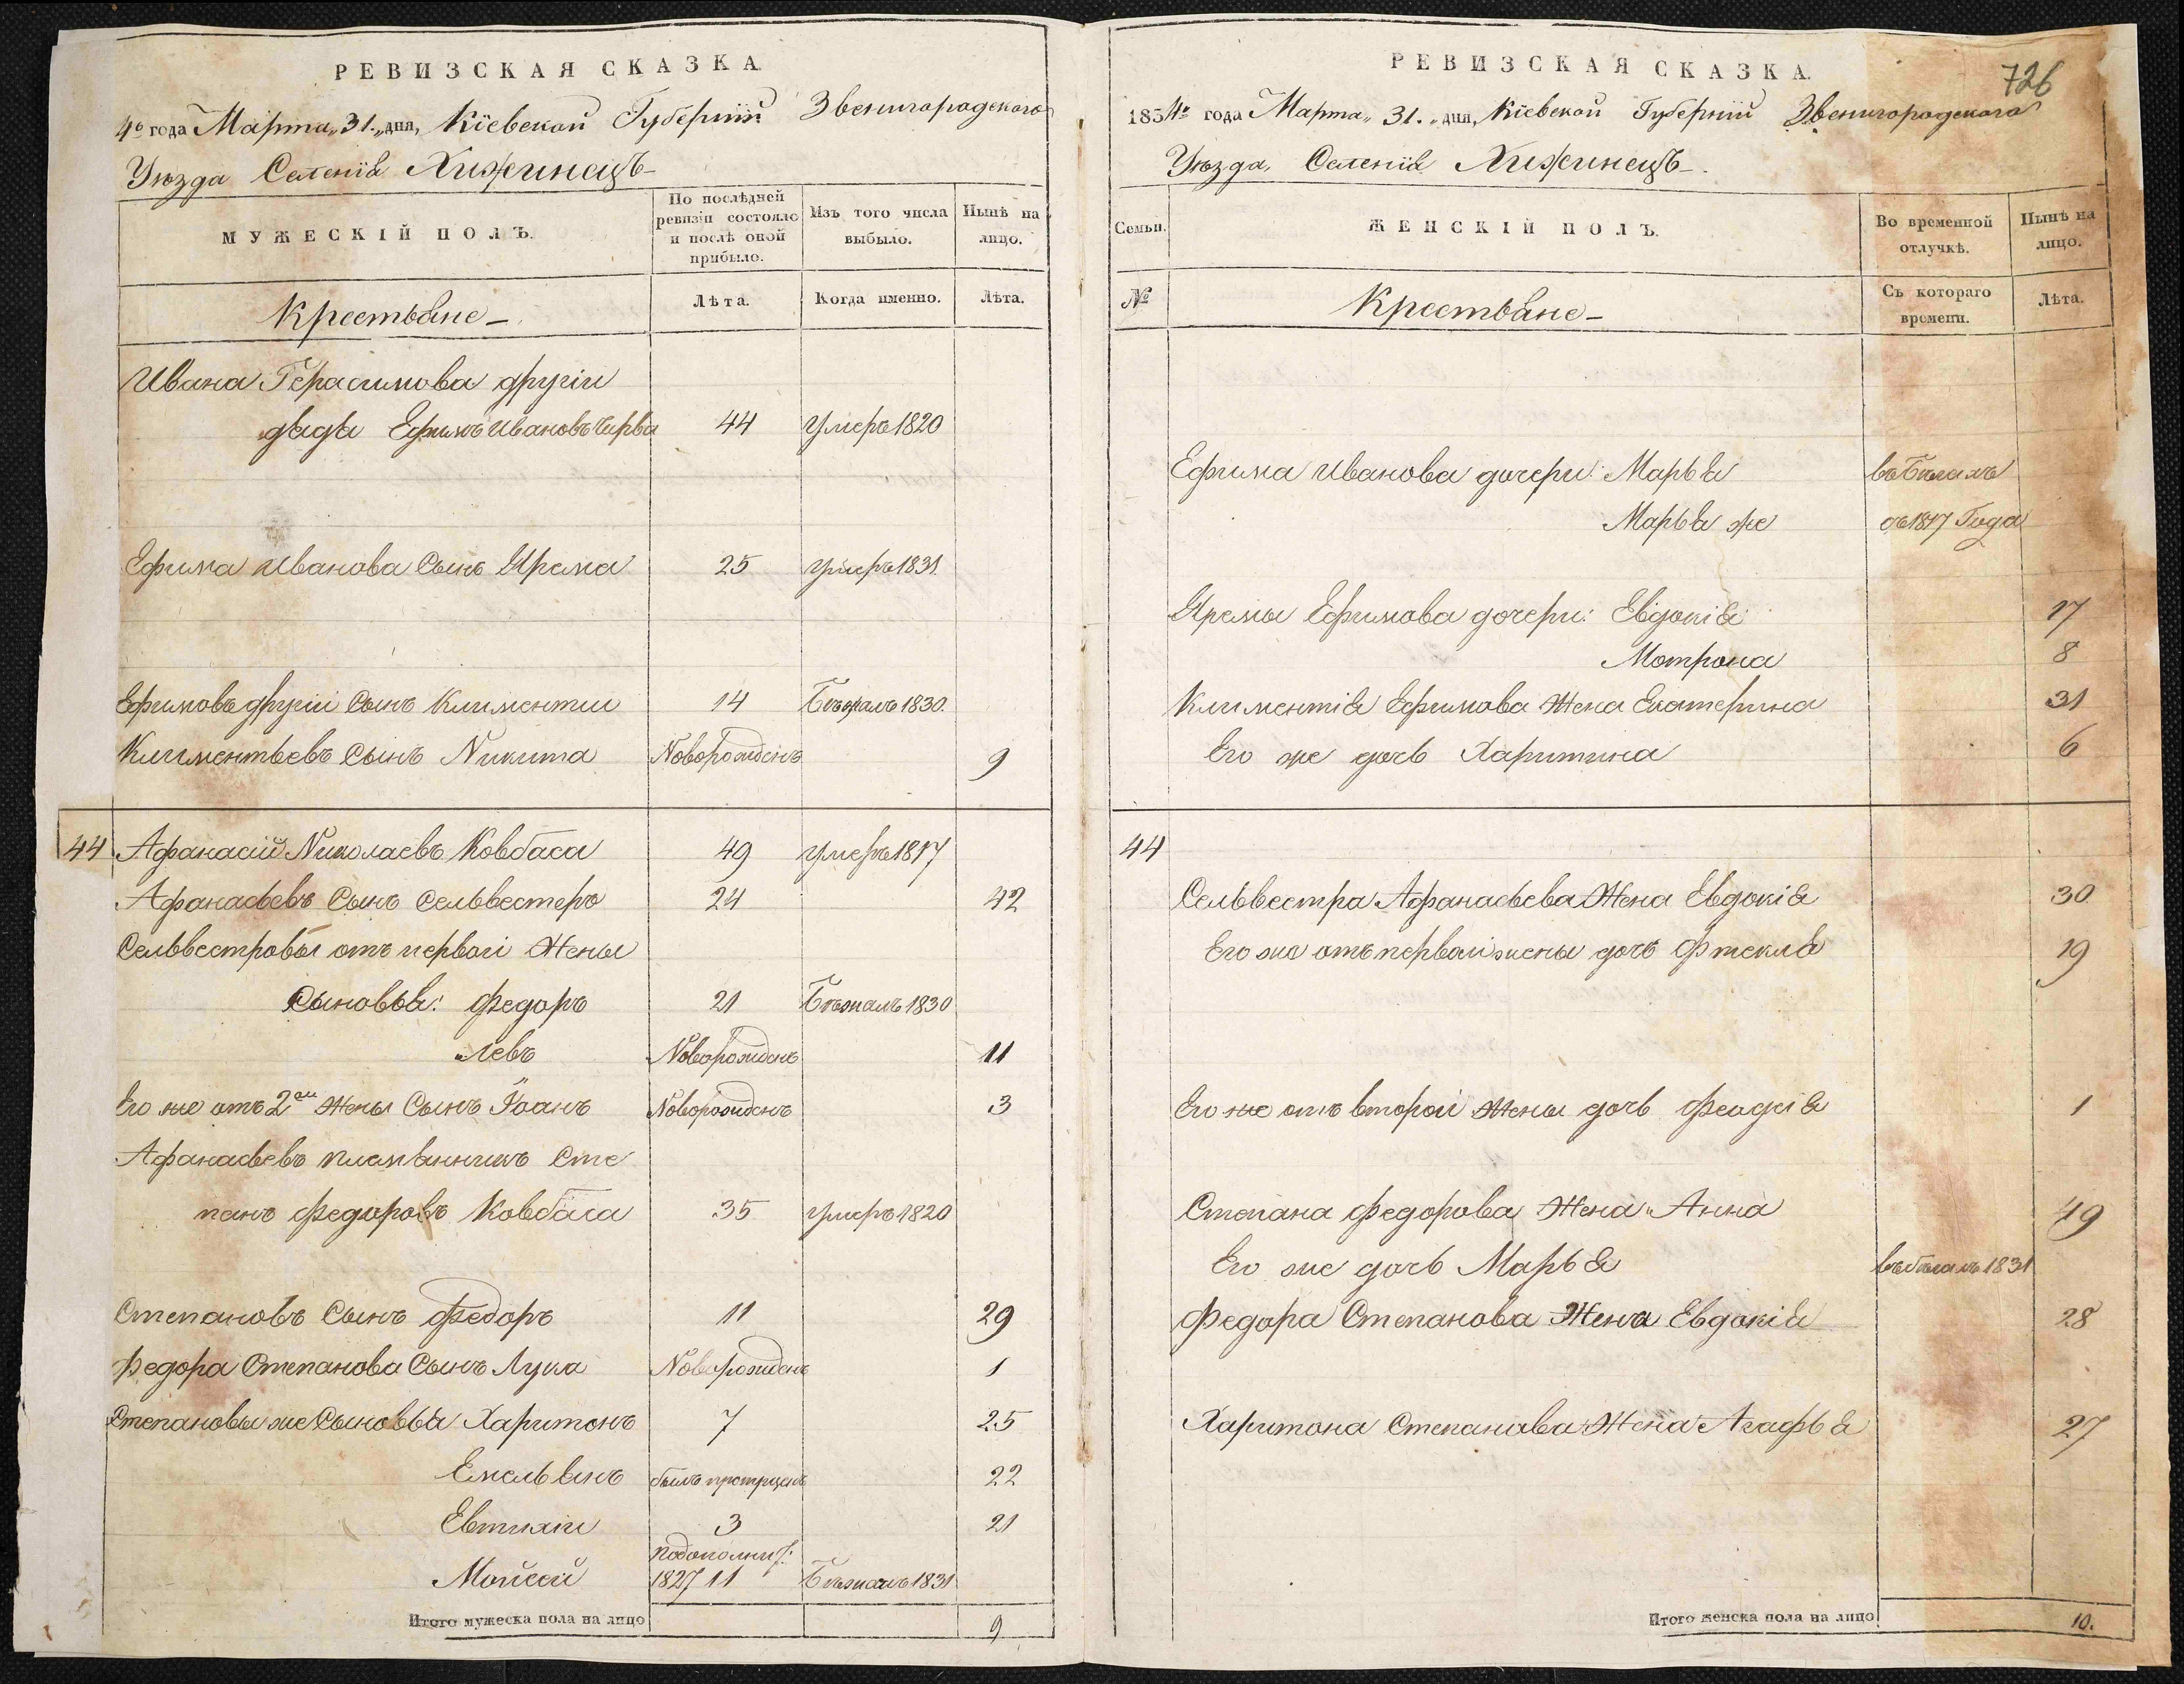 РЕВИЗСКАЯ СКАЗКА.
4го года Марта „31.„ дня, Кіевской Губерніи Звенигородскаго
Уѣзда Селенія Хижинецъ
МУЖЕСКІЙ ПОЛЪ.
По послѣдней ревизіи состояло и послѣ оной прибыло.
Изъ того числа выбыло.
Нынѣ на лицо.
Крестьяне
Лѣта.
Когда именно.
Лѣта.
Ивана Герасимова другіи
дядя Ефимъ Ивановъ 44 умеръ 1820
Ефима Иванова Сынъ Ярема 25 умеръ 1831.
Ефимовъ другіи Сынъ Климентии 14 Бѣжалъ 1830.
Климентьевъ Сынъ Никита Новорожденъ 9
44 Афанасій Николаевъ Ковбаса 49 умеръ 1817
Афанасьевъ Сынъ Сельвестеръ 24 42
Сельвестровы отъ первой Жены
Сыновья: Федоръ 21 Бѣжалъ 1830
Левъ Новорожденъ 11
Его же отъ 2ой Жены Сынъ Іоанъ Новорожденъ 3
Афанасьевъ племянникъ Сте
панъ Федоровъ Ковбаса 35 умеръ 1820
Степановъ Сынъ Федоръ 11 29
Федора Степанова Сынъ Лука Новорожденъ 1
Степановы же Сыновья Харитонъ 7 25
Емельянъ былъ пропущенъ 22
Евтихіи 3 21
Мойсей
1827 11 Бѣжалъ 1831
Итого мужеска пола на лицо 9
726
РЕВИЗСКАЯ СКАЗКА.
1854го года Марта „31.„ дня, Кіевской Губерніи Звенигородскаго
Уѣзда, Селенія Хижинецъ
Семьи.
ЖЕНСКІЙ ПОЛЪ.
Во временной отлучкѣ.
Нынѣ на лицо.
№
Крестьяне
Съ котораго времени.
Лѣта.
Ефима Иванова дочери: Марья въ бѣгахъ
Марья же съ 1817 Года
Яремы Ефимова дочери: Евдокія 17
Мотрона 8
Климентія Ефимова Жена Екатерина 31
Его же дочь Харитина 6
44
Сельвестра Афанасьева Жена Евдокія 30
Его же отъ первой жены дочь Фтекля 19
Его же отъ второй Жены дочь 1
Степана Федорова Жена Анна 49
Его же дочь Марья въ бѣгахъ 1831
Федора Степанова Жена Евдокія 28
Харитона Степанова Жена Агафья 27
Итого женска пола на лицо 10.